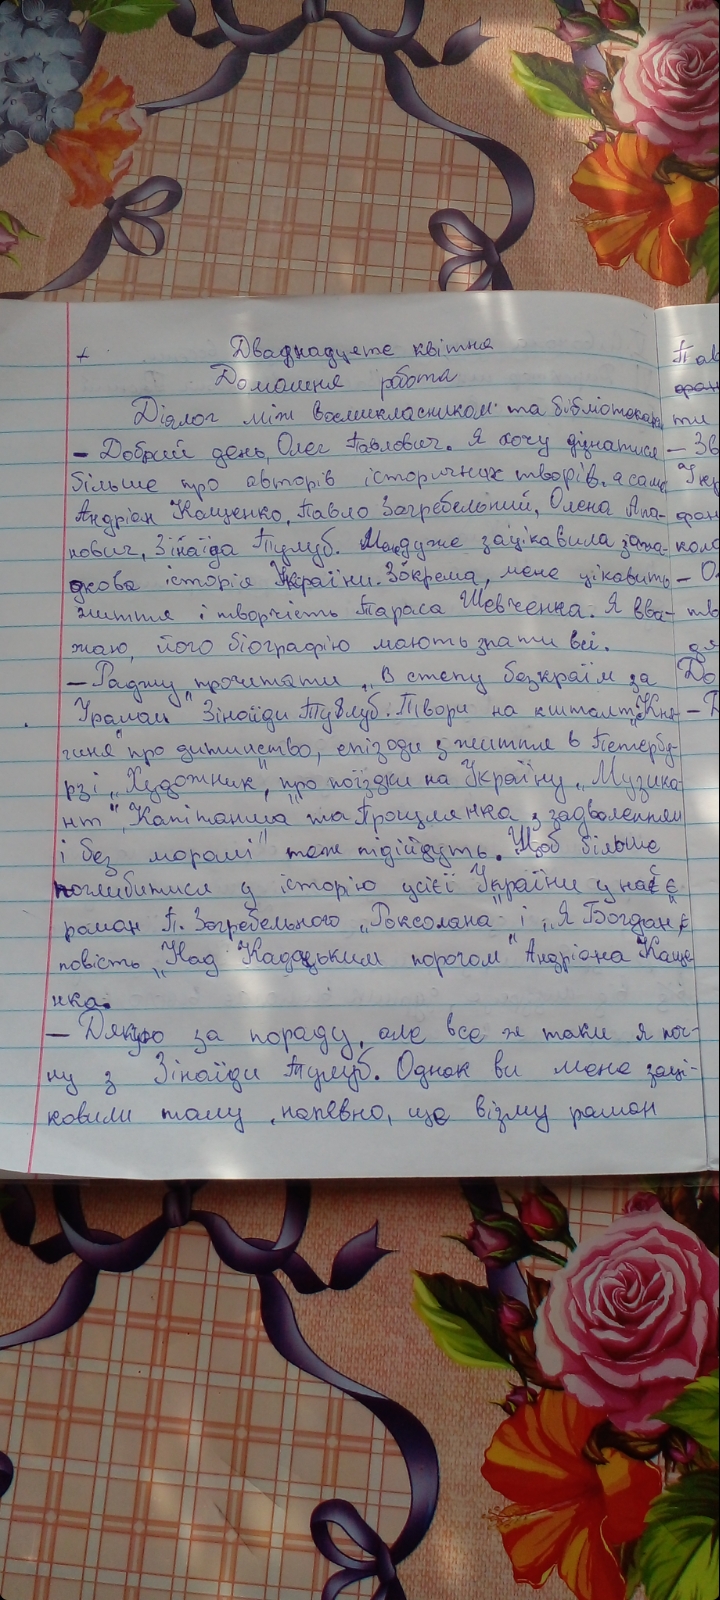 Двадцяте квітня
Домашня робота
Діалог між восьмикласником та бібліотекарем
– Добрий день, Олег Павлович. Я хочу дізнатися
більше про авторів історичних творів, а саме
Андріан Кащенко, Павло Загребельний, Олена Апа-
нович, Зінаїда Тулуб. Мене дуже зацікавила зага-
дкова історія України. Зокрема, мене цікавить
життя і творчість Тараса Шевченка. Я вва-
жаю, його біографію мають знати всі.
– Раджу прочитати „В степу безкраїм за
Уралом" Зінаїди Тулуб. Твори на кшталт „Кня-
гиня" про дитинство, епізоди з життя в Петербу-
рзі „Художник", про поїздки на Україну „Музика-
нт", Капітанша та Прогулянка з задволенням
і без моралі" теж підійдуть. Щоб більше
поглибитися у історію усієї України у нас є
роман П. Загребельного „Роксолана" і „Я Богдан",
повість „Над Кодацьким порогом" Андріана Каще-
нка.
– Дякую за пораду, але все ж таки я поч-
ну з Зінаїди Тулуб. Однак ви мене заці-
кавили тому, напевно, ще візму роман